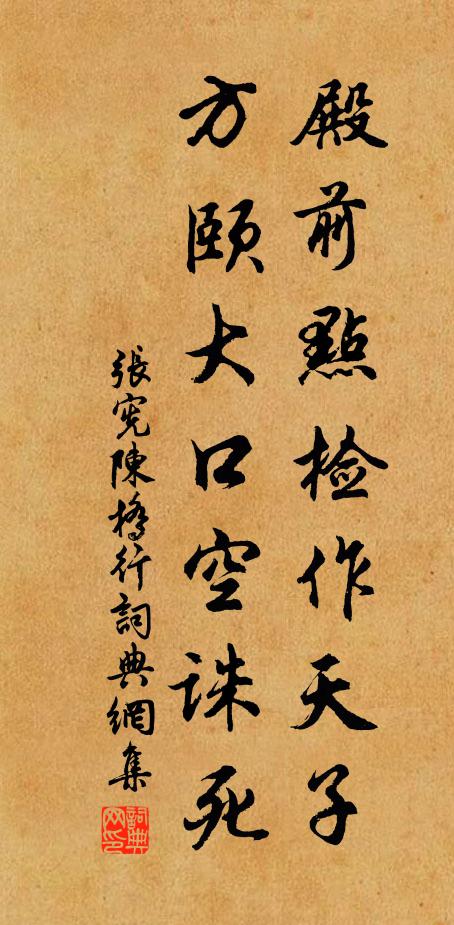 殿前點检作天子
方頤大口空誅死
張憲陳橋行詞典網集
詞典網印